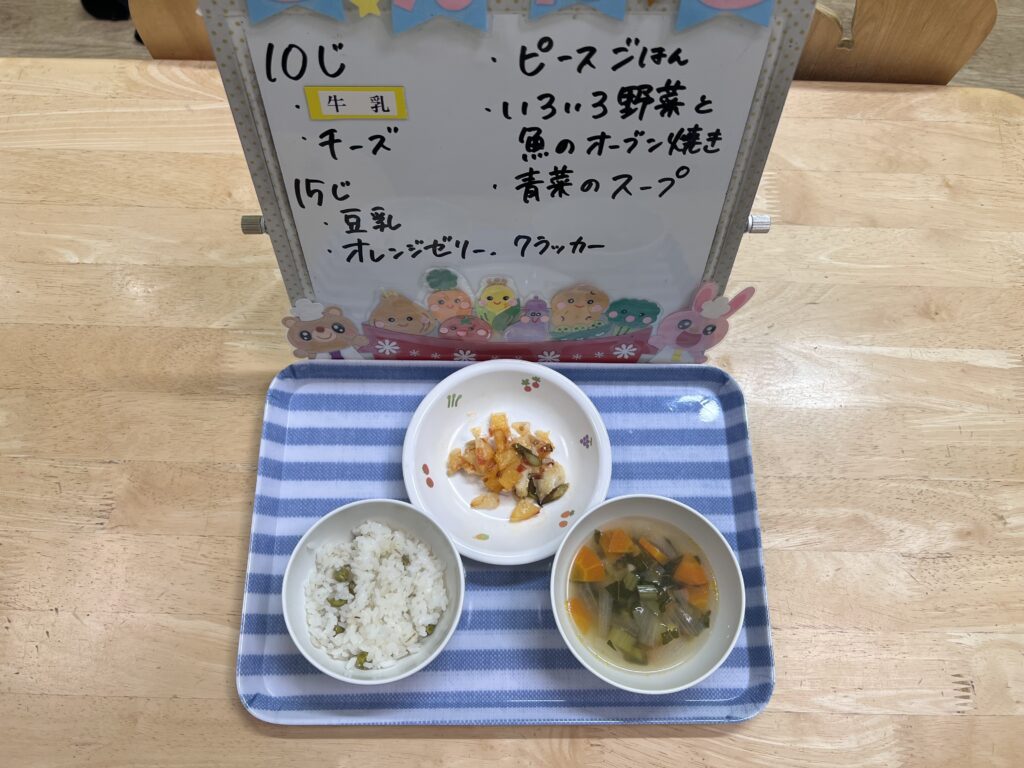 10じ
・牛乳
・チーズ
15じ
・豆乳
・オレンジゼリー、クラッカー
・ピースごはん
・いろいろ野菜と
魚のオーブン焼き
・青菜のスープ